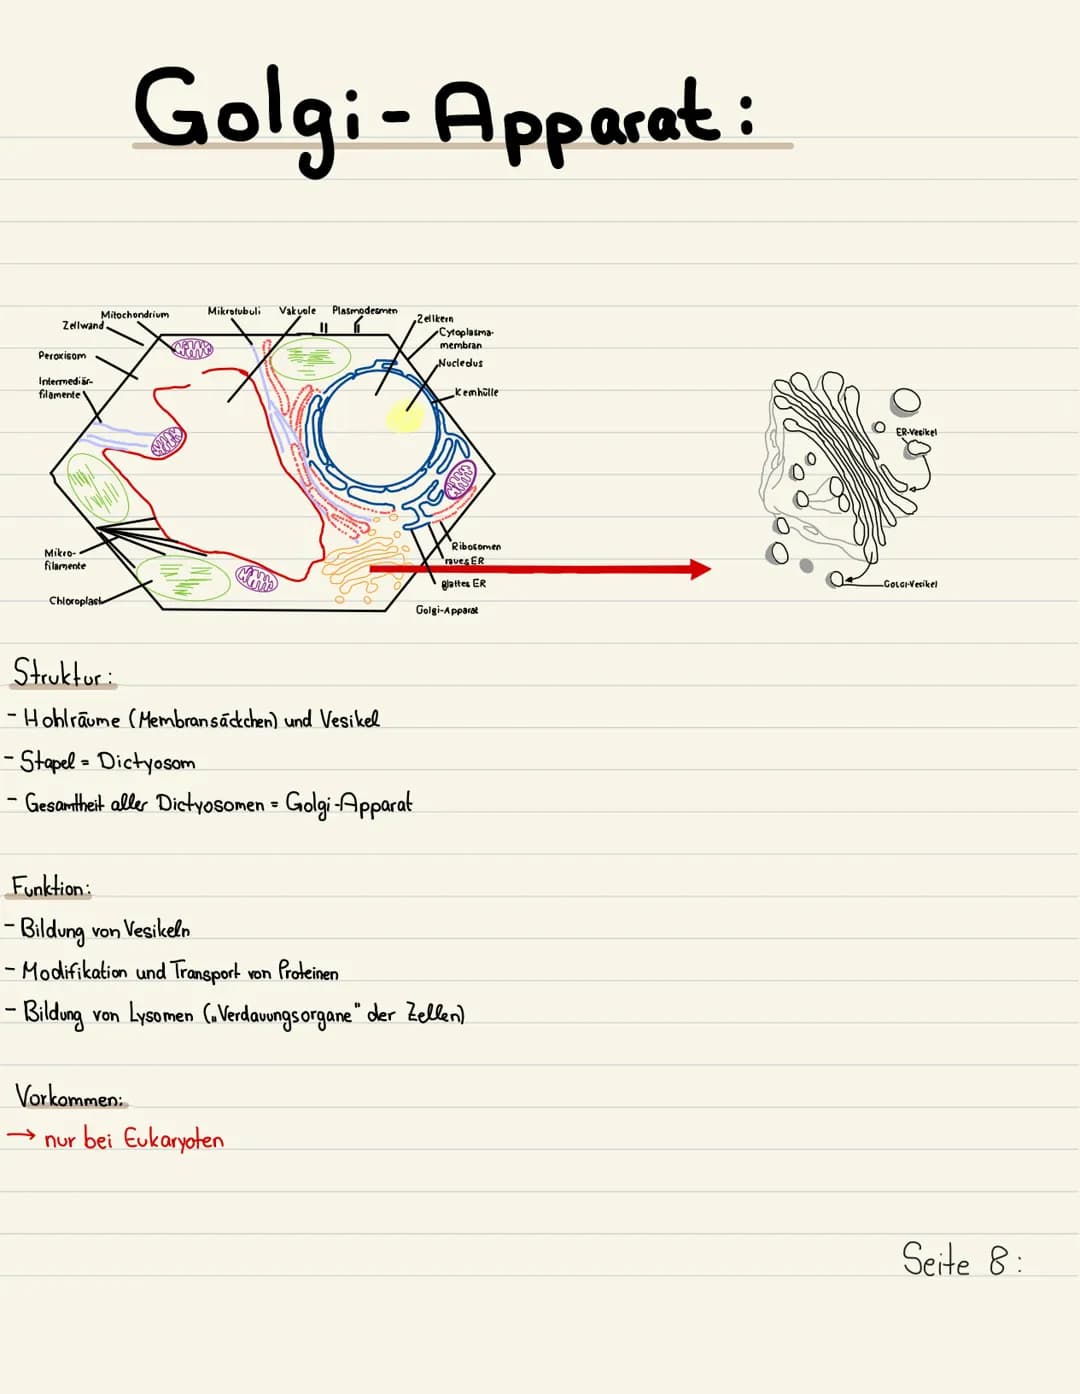 Golgi-Apparat:
Mitochondrium
Mikrotubuli
Vakuole
Plasmodesmen
Zellwand
Zellkern
Cytoplasma-
membran
Peroxisom
Nucledus
Intermediär-
filamente
Kernhülle
ER-Vesikel
Mikro-
filamente
Ribosomen
raues ER
glattes ER
Golgi-Vesikel
Chloroplast
Golgi-Apparat
Struktur:
- Hohlräume (Membransäckchen) und Vesikel
- Stapel = Dictyosom
- Gesamtheit aller Dictyosomen = Golgi-Apparat
Funktion:
- Bildung von Vesikeln
- Modifikation und Transport von Proteinen
- Bildung von Lysomen („Verdauungsorgane" der Zellen)
Vorkommen:
→ nur bei Eukaryoten
Seite 8: